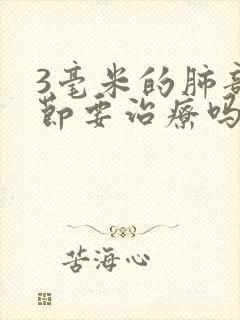 3毫米的肺部
节要治疗吗
苦海心